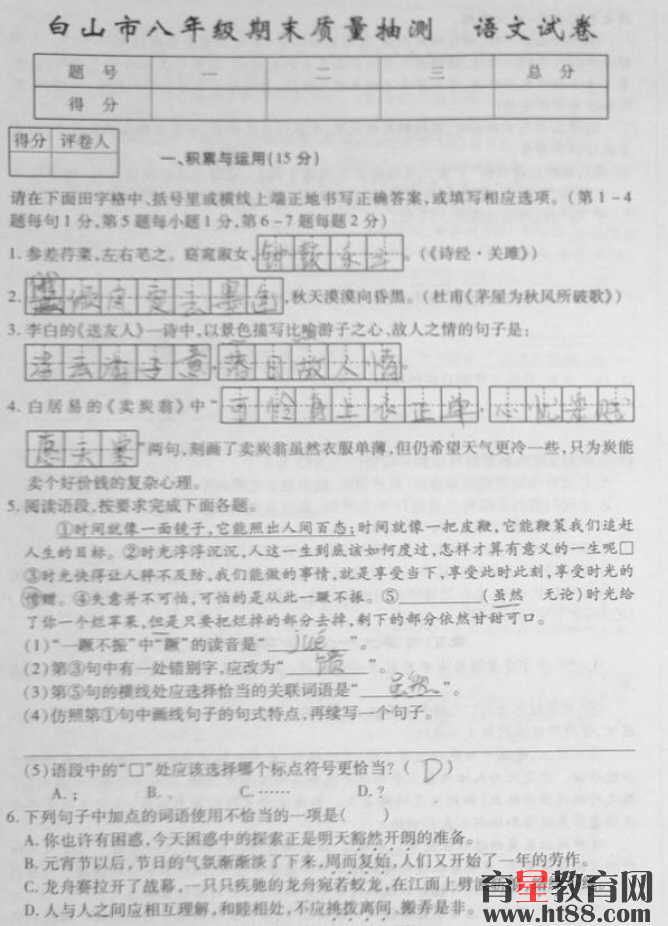 白山市八年级期末质量抽测 语文试卷
题 号 一 二 三 总 分
得 分
得分 评卷人
一、积累与运用(15分)
请在下面田字格中、括号里或横线上端正地书写正确答案,或填写相应选项。(第1-4
题每句1分,第5题每小题1分,第6-7题每题2分)
1. 参差荇菜,左右芼之。窈窕淑女,钟鼓乐之。(《诗经·关雎》)
2. 俄顷风定云墨色,秋天漠漠向昏黑。(杜甫《茅屋为秋风所破歌》)
3. 李白的《送友人》一诗中,以景色描写比喻游子之心、故人之情的句子是:
浮云游子意,落日故人情。
4. 白居易的《卖炭翁》中“可怜身上衣正单,心忧炭贱
愿天寒”两句,刻画了卖炭翁虽然衣服单薄,但仍希望天气更冷一些,只为炭能
卖个好价钱的复杂心理。
5. 阅读语段,按要求完成下面各题。
①时间就像一面镜子,它能照出人间百态;时间就像一把皮鞭,它能鞭策我们追赶
人生的目标。②时光浮浮沉沉,人这一生到底该如何度过,怎样才算有意义的一生呢□
③时光快得让人猝不及防,我们能做的事情,就是享受当下,享受此时此刻,享受时光的
赠。④失意并不可怕,可怕的是从此一蹶不振。⑤______(虽然 无论)时光给
了你一个烂苹果,但是只要把烂掉的部分去掉,剩下的部分依然甘甜可口。
(1)“一蹶不振”中“蹶”的读音是“ jué ”。
(2)第③句中有一处错别字,应改为“ 馈 ”。
(3)第⑤句的横线处应选择恰当的关联词语是“ 虽然 ”。
(4)仿照第①句中画线句子的句式特点,再续写一个句子。
(5)语段中的“□”处应该选择哪个标点符号更恰当?( D )
A. ; B. 、 C. …… D. ?
6. 下列句子中加点的词语使用不恰当的一项是( )
A. 你也许有困惑,今天困惑中的探索正是明天豁然开朗的准备。
B. 元宵节以后,节日的气氛渐渐淡了下来,周而复始,人们又开始了一年的劳作。
C. 龙舟赛拉开了战幕,一只只疾驰的龙舟宛若蛟龙,在江面上劈
D. 人与人之间应相互理解,和睦相处,不应挑拨离间、搬弄是非。
育星教育网
www.ht88.com